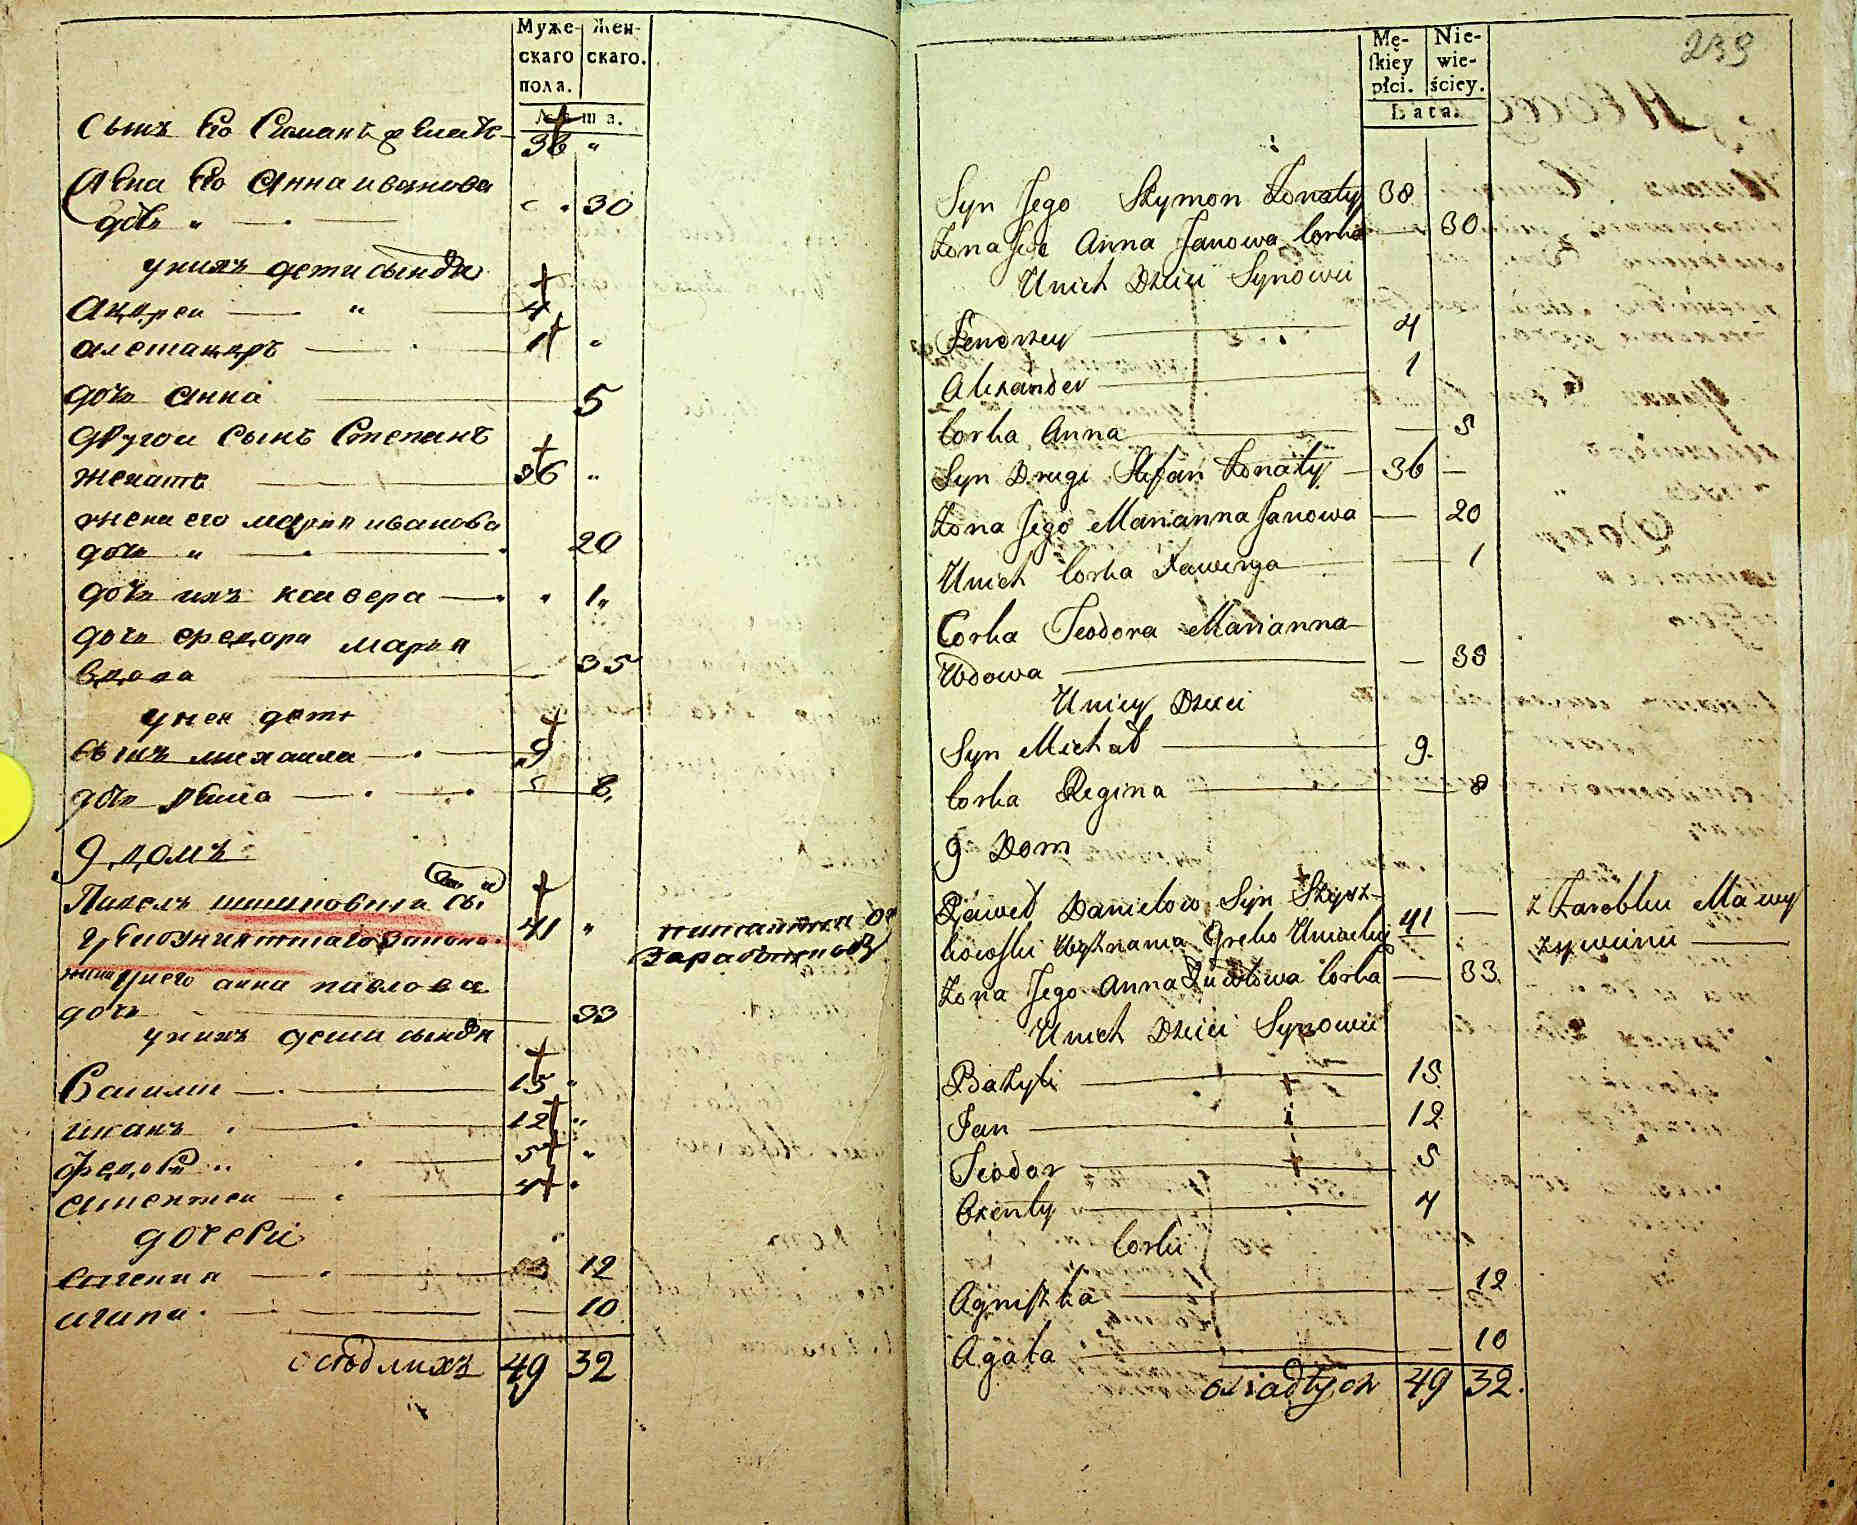 Муже-
скаго
пола.
Жен-
скаго.
Лѣта.
Сынъ Его Симанъ 38 "
Жена Его Анна иванова
дочь " 30
унихъ дети сынове
Андреи " 4
александръ 1 "
дочь Анна 5
другои Сынъ Степанъ
женатъ 36 "
жена его марья иванова
дочь " 20
дочь ихъ ксивера " 1 "
дочь федора марья
вдова 35
унеи дети
Сынъ михаила 9
дочь 8.
9 домъ
Павелъ сы
41 "
жена Унего анна павлова
дочь 33
унихъ дети сынове
Василии 15 "
иванъ 12 "
Федоръ " 5 "
4 "
дочери
12
агапа 10
оседлихъ 49 32
239
Mę-
skiey
płci.
Nie-
wie-
ściey.
Lata.
Syn Jego Szymon Żonaty 38
Żona Jego Anna Janowa Corka — 30
Unich Dzieci Synowie
Jendrzey 4
Alexander 1
Corka Anna — 5
Syn Drugi Stefan Żonaty — 36 —
Żona Jego Marianna Janowa — 20
Unich Corka Xawerya — 1
Corka Teodora Marianna
Wdowa — 35
Uniey Dzieci
Syn Michał 9.
Corka Regina — 8
9 Dom
Paweł Danielow Syn Szysz-
kowski Wyznania Greko Unickiey 41 — z Zarobku Ma wy
zywienie
Żona Jego Anna Pawłowa Corka — 33.
Unich Dzieci Synowie
Bazyli 15
Jan 12
Teodor 5
4
Corki
Agniszka — 12
Agata — 10
osiadłych 49 32.